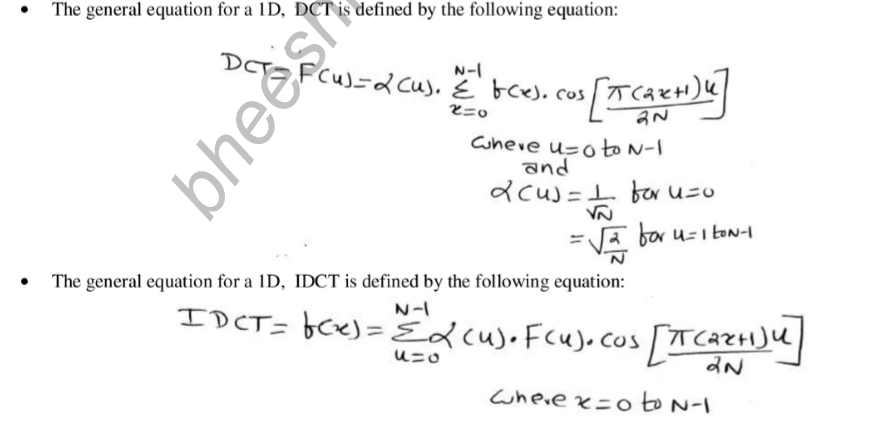 • The general equation for a 1D, DCT is defined by the following equation:
DCT = F(u) = α(u). Σ f(x). cos [π(2x+1)u / 2N]
N-1
x=0
where u=0 to N-1
and
α(u) = 1/√N for u=0
= √2/N for u=1 to N-1
• The general equation for a 1D, IDCT is defined by the following equation:
IDCT = f(x) = Σ α(u). F(u). cos [π(2x+1)u / 2N]
N-1
u=0
where x=0 to N-1